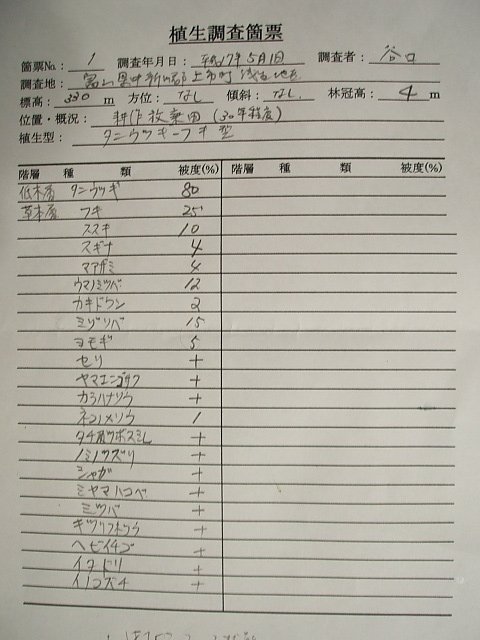 植生調査箇票
箇票No.: 1 調査年月日: 平成17年5月1日 調査者: 谷口
調査地: 富山県中新川郡上市町
標高: 330 m 方位: なし 傾斜: なし 林冠高: 4 m
位置・概況: 耕作放棄田(30年程度)
植生型: タニウツギーフキ型
階層 種 類 被度(%) 階層 種 類 被度(%)
低木層 タニウツギ 80
草本層 フキ 25
ススキ 10
スギナ 4
マアザミ 4
ウマノミツバ 12
カキドウシ 2
ミゾソバ 15
ヨモギ 5
セリ +
ヤマエンゴサク +
カラハナソウ +
ネコノメソウ 1
タチツボスミレ +
ノミノフスマ +
シャガ +
ミヤマハコベ +
ミツバ +
キツリフネソウ +
ヘビイチゴ +
イタドリ +
イノコズチ +